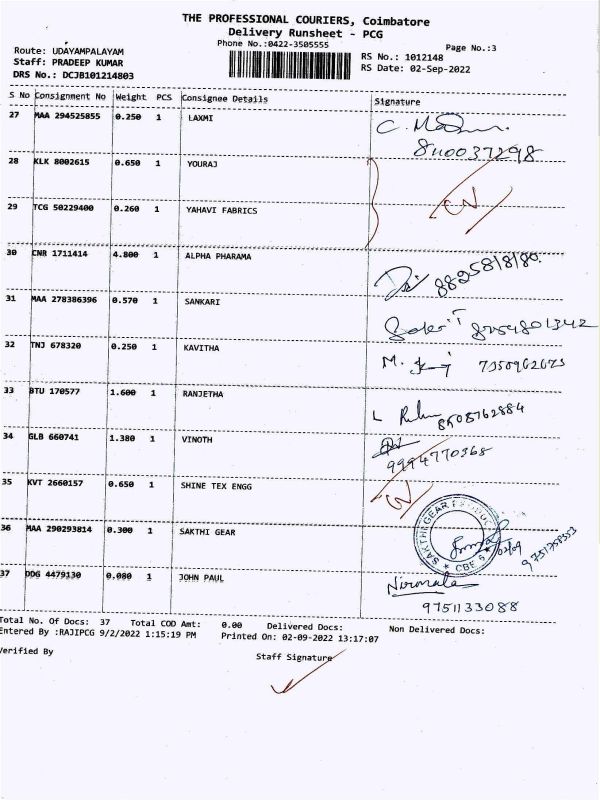 THE PROFESSIONAL COURIERS, Coimbatore
Delivery Runsheet - PCG
Phone No.:0422-3505555
Page No.:3
Route: UDAYAMPALAYAM
Staff: PRADEEP KUMAR
DRS No.: DCJB101214803
RS No.: 1012148
RS Date: 02-Sep-2022
S No Consignment No Weight PCS Consignee Details Signature
27 MAA 294525855 0.250 1 LAXMI
28 KLK 8002615 0.650 1 YOURAJ
29 TCG 50229400 0.260 1 YAHAVI FABRICS
30 CNR 1711414 4.800 1 ALPHA PHARAMA
31 MAA 278386396 0.570 1 SANKARI
8754801342
32 TNJ 678320 0.250 1 KAVITHA
M.
33 BTU 170577 1.600 1 RANJETHA
L
8508762884
34 GLB 660741 1.380 1 VINOTH
9994770368
35 KVT 2660157 0.650 1 SHINE TEX ENGG
36 MAA 290293814 0.300 1 SAKTHI GEAR
SAKTHI GEAR PRODUCTS
37 DDG 4479130 0.080 1 JOHN PAUL
Nirmala
9751133088
Total No. Of Docs: 37 Total COD Amt: 0.00 Delivered Docs: Non Delivered Docs:
Entered By :RAJIPCG 9/2/2022 1:15:19 PM Printed On: 02-09-2022 13:17:07
Verified By
Staff Signature